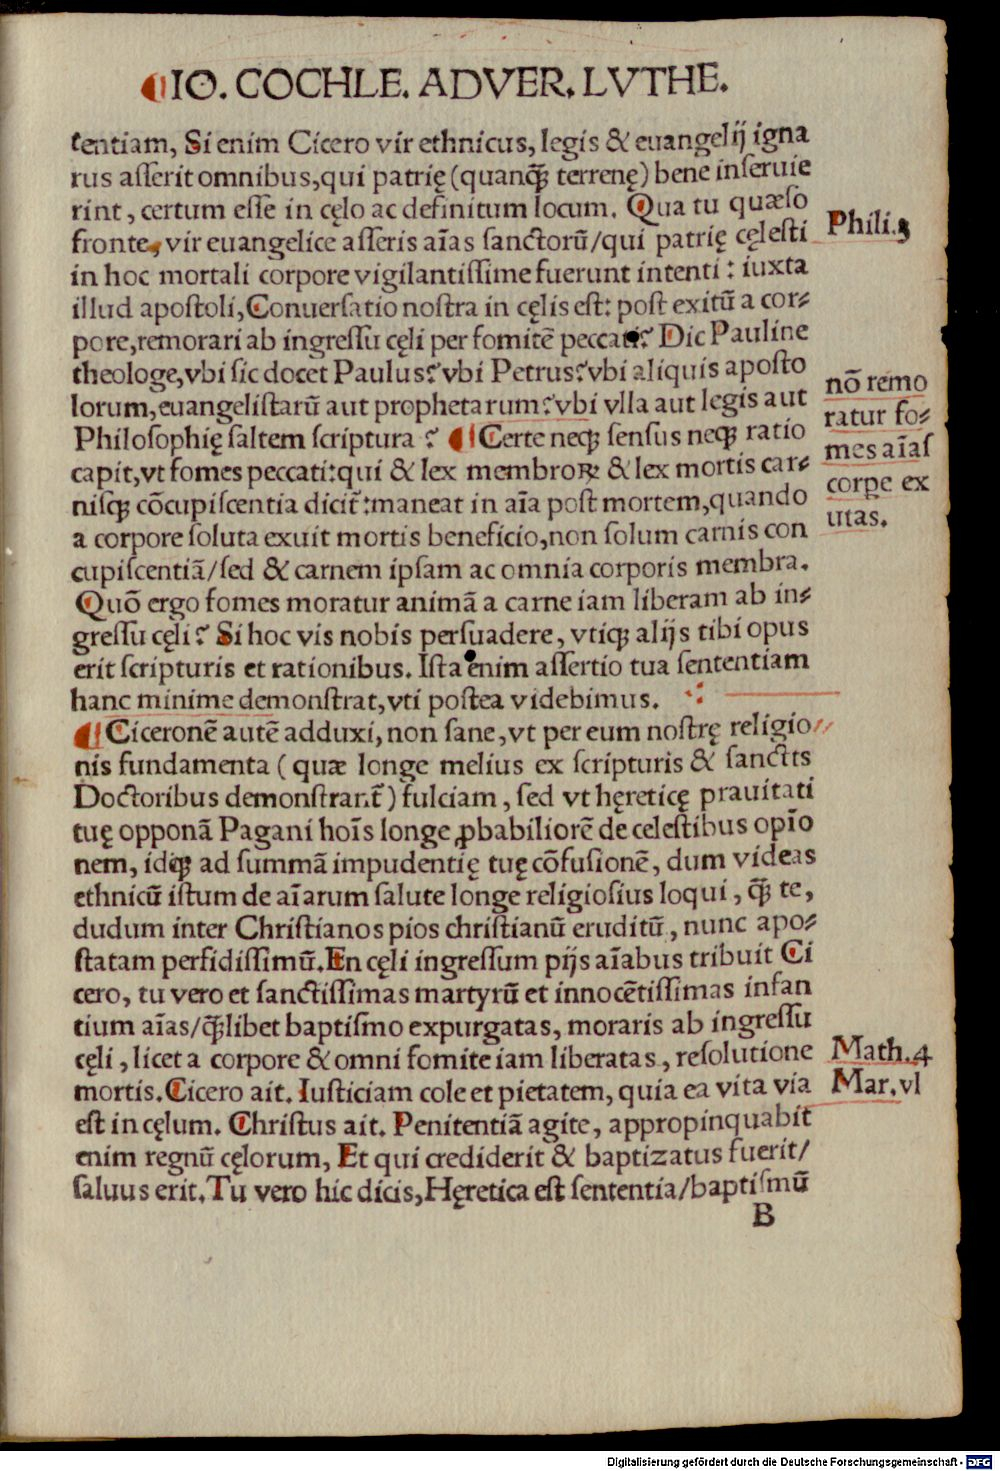 ¶IO. COCHLE. ADVER. LVTHE.
tentiam, Si enim Cicero vir ethnicus, legis & euangelij igna
rus asserit omnibus,qui patrię (quanqꝫ terrenę) bene inseruie
rint, certum esse in cęlo ac definitum locum. Qua tu quæso
fronte, vir euangelice asseris aīas sanctorū/qui patrię cęlesti
Phili.3
in hoc mortali corpore vigilantissime fuerunt intenti: iuxta
illud apostoli,Conuersatio nostra in cęlis est: post exitū a cor⸗
pore,remorari ab ingressu cęli per fomitē peccati? Dic Pauline
theologe,vbi sic docet Paulus? vbi Petrus? vbi aliquis aposto
lorum,euangelistarū aut prophetarum? vbi vlla aut legis aut
Philosophię saltem scriptura? ¶Certe neqꝫ sensus neqꝫ ratio
nō remo
ratur fo⸗
mes aīas
corpe ex
utas.
capit,vt fomes peccati:qui & lex membroꝝ & lex mortis car⸗
nisqꝫ cōcupiscentia dicit̄:maneat in aīa post mortem,quando
a corpore soluta exuit mortis beneficio,non solum carnis con
cupiscentiā/sed & carnem ipsam ac omnia corporis membra.
Quō ergo fomes moratur animā a carne iam liberam ab in⸗
gressu cęli? Si hoc vis nobis persuadere, vtiqꝫ alijs tibi opus
erit scripturis et rationibus. Ista enim assertio tua sententiam
hanc minime demonstrat,vti postea videbimus.
¶Ciceronē autē adduxi, non sane, vt per eum nostrę religio
nis fundamenta ( quæ longe melius ex scripturis & sanctis
Doctoribus demonstrant̄) fulciam, sed vt hęreticę prauitati
tuę opponā Pagani hoīs longe ꝓbabiliorē de celestibus opīo
nem, idqꝫ ad summā impudentię tuę cōfusionē, dum videas
ethnicū istum de aīarum salute longe religiosius loqui, qꝫ̄ te,
dudum inter Christianos pios christianū eruditū, nunc apo⸗
statam perfidissimū.En cęli ingressum pijs aīabus tribuit Ci
cero, tu vero et sanctissimas martyrū et innocētissimas infan
tium aīas/qꝫ̄libet baptismo expurgatas, moraris ab ingressu
cęli, licet a corpore & omni fomite iam liberatas, resolutione
mortis. Cicero ait. Iusticiam cole et pietatem, quia ea vita via
est in cęlum. Christus ait. Penitentiā agite, appropinquabit
Math.4
Mar.vl
enim regnū cęlorum, Et qui crediderit & baptizatus fuerit/
saluus erit.Tu vero hic dicis,Hęretica est sententia/baptismū
B
Digitalisierung gefördert durch die Deutsche Forschungsgemeinschaft - DFG